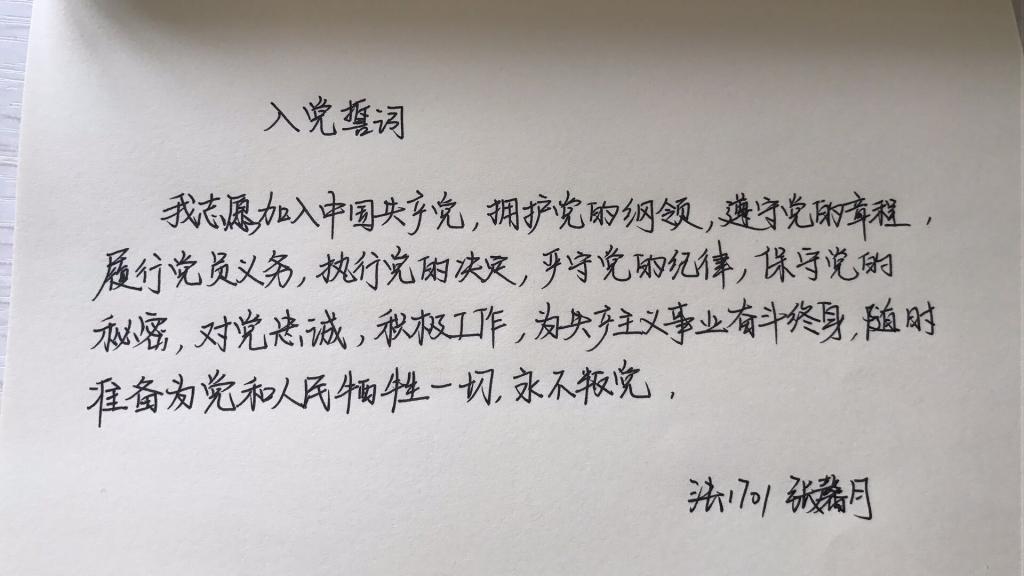 入党誓词
我志愿加入中国共产党，拥护党的纲领，遵守党的章程，
履行党员义务，执行党的决定，严守党的纪律，保守党的
秘密，对党忠诚，积极工作，为共产主义事业奋斗终身，随时
准备为党和人民牺牲一切，永不叛党．
法1701 张馨月